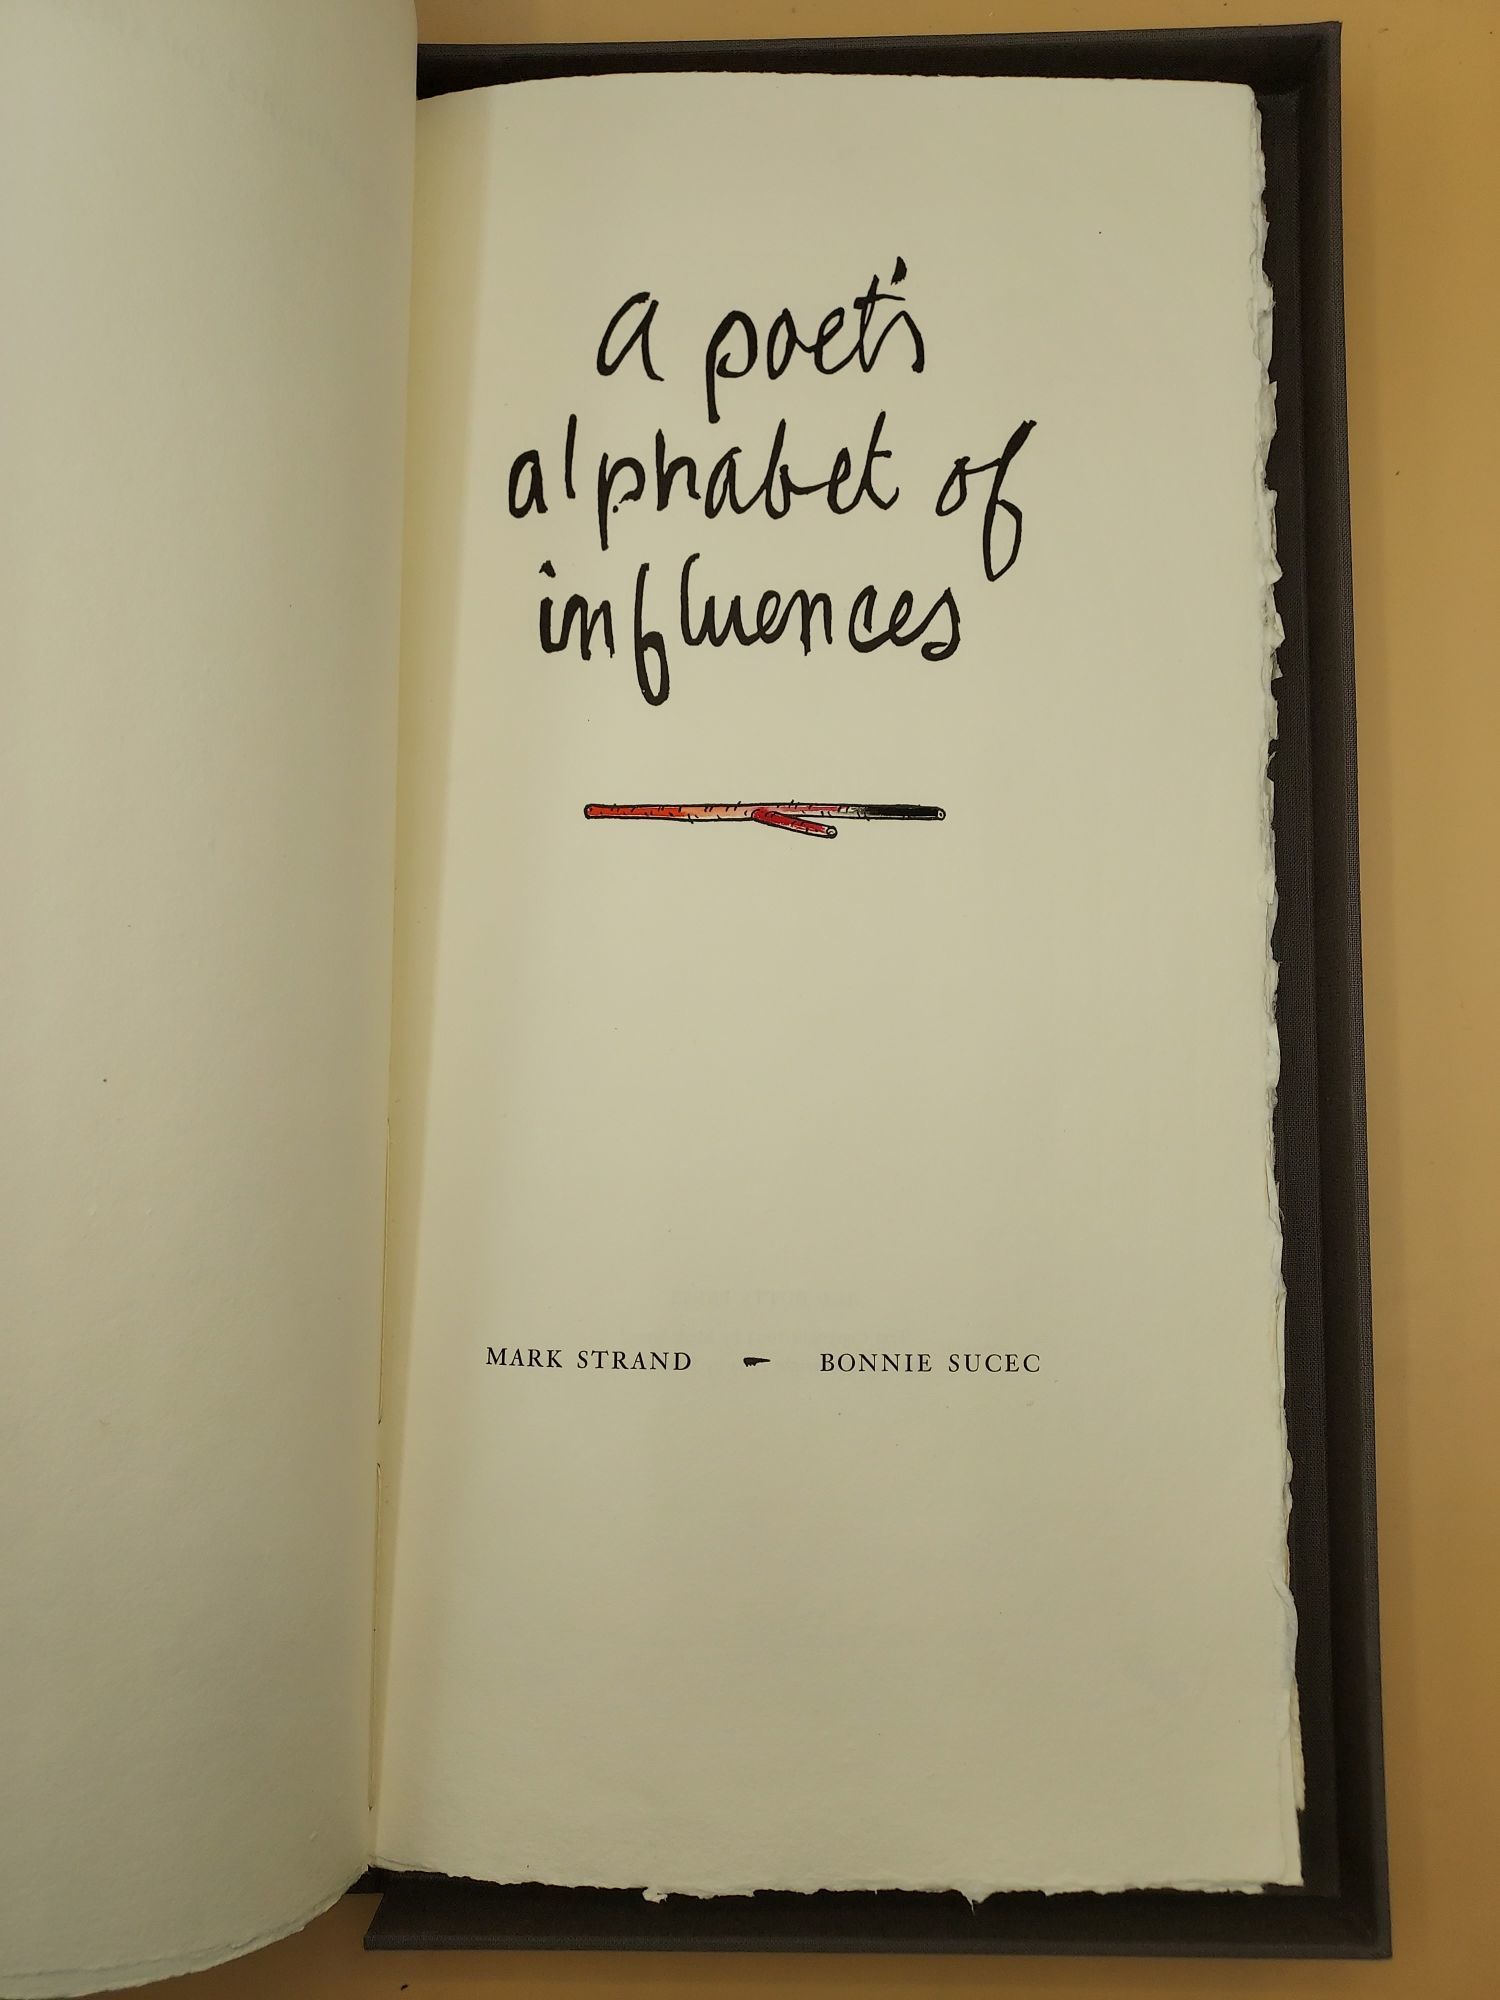 a poet's
alphabet of
influences
MARK STRAND - BONNIE SUCEC